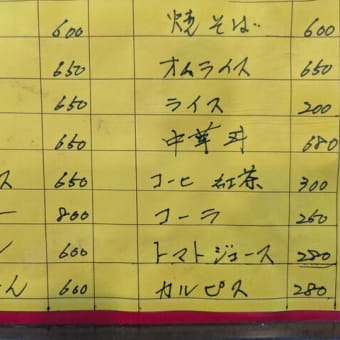 600 焼そば 600
650 オムライス 650
650 ライス 200
650 中華丼 680
ス 650 コーヒ 紅茶 300
ー 800 コーラ 260
600 トマトジュース 280
ん 600 カルピス 280